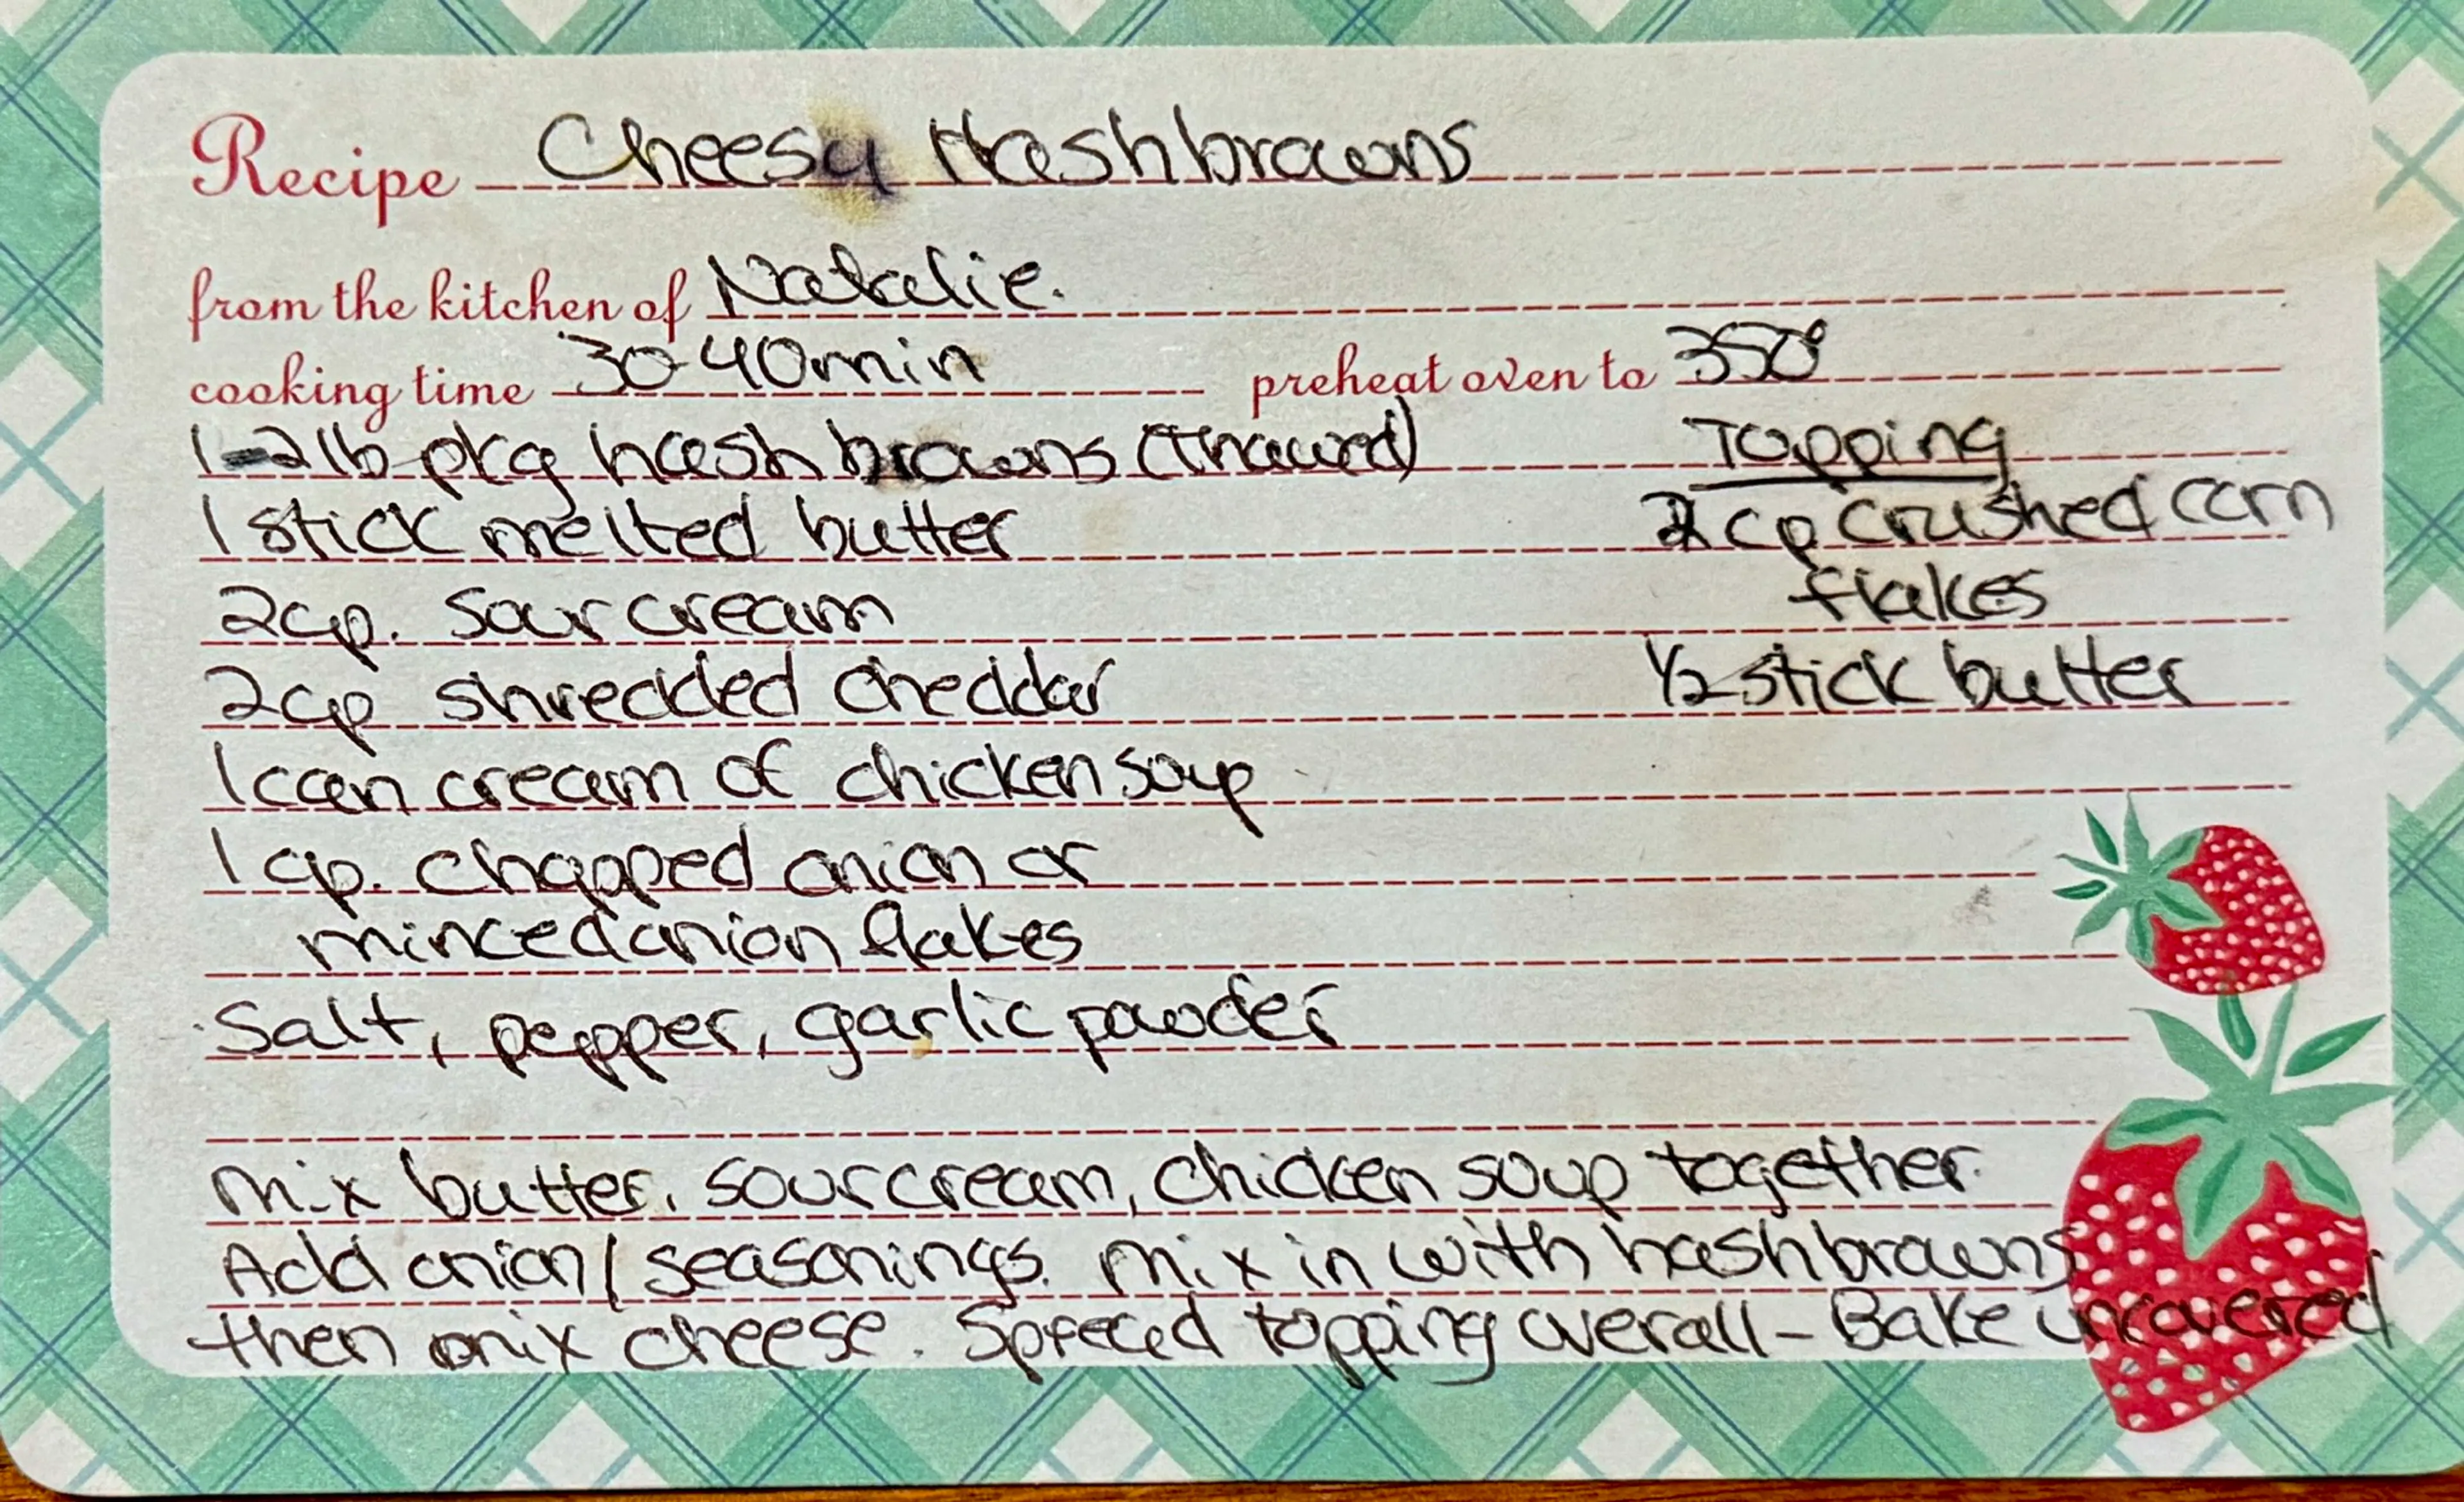 Recipe Cheesy Hashbrowns
from the kitchen of Natalie.
cooking time 30-40min preheat oven to 350°
1-2lb pkg hash browns (Thawed)
1 stick melted butter
2cp. sour cream
2cp shredded cheddar
1 can cream of chicken soup
1 cp. chopped onion or
minced onion flakes
Salt, pepper, garlic powder
Topping
2 cp crushed corn
flakes
1/2 stick butter
Mix butter, sour cream, chicken soup together.
Add onion/seasonings. Mix in with hashbrowns
then mix cheese. Spread topping overall - Bake uncovered